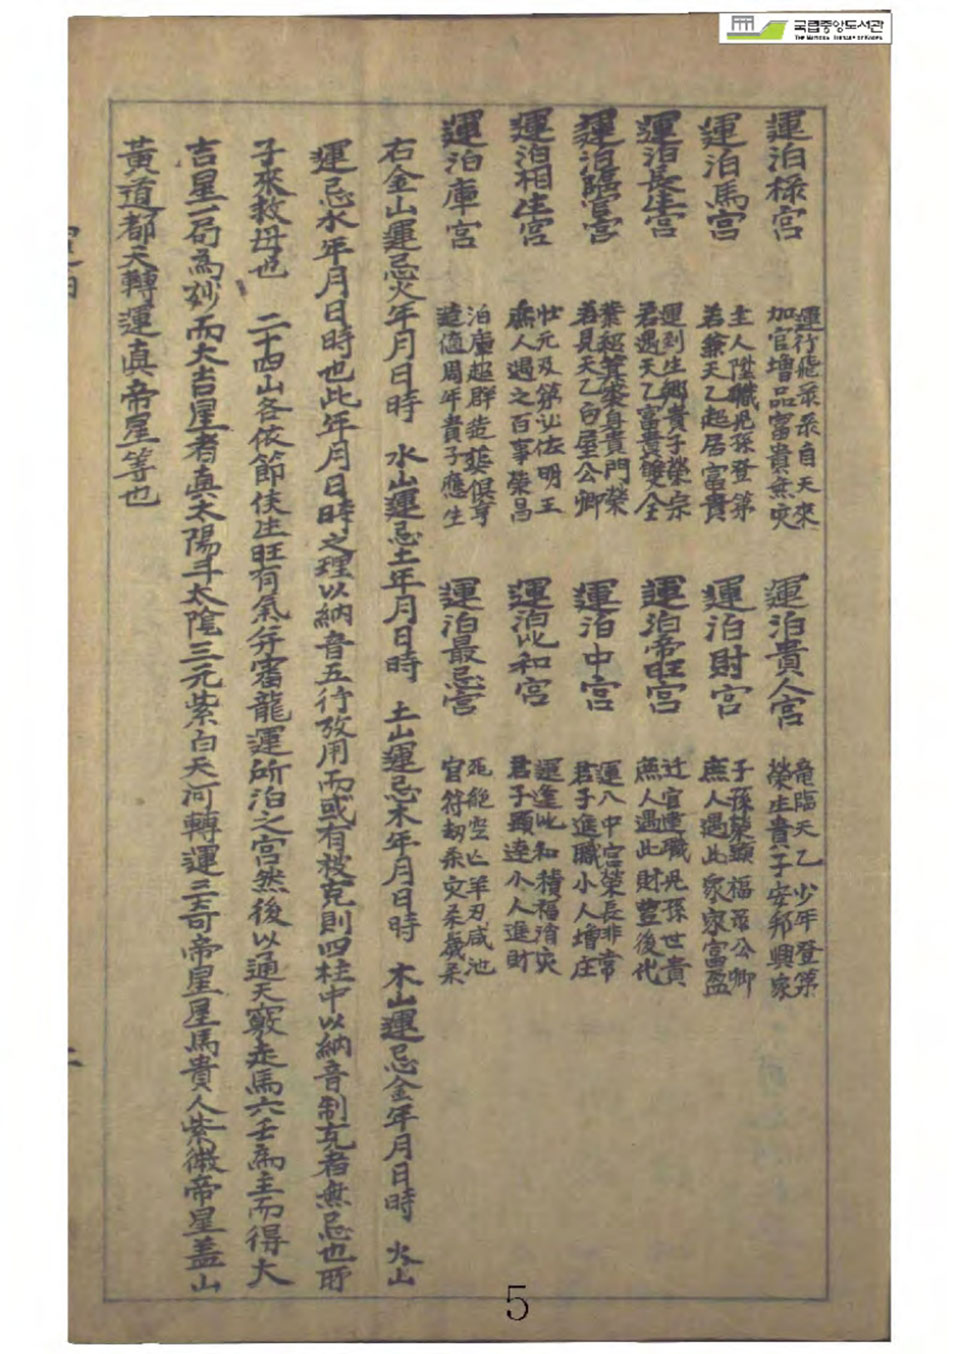 국립중앙도서관
The National Library of Korea
運泊祿宮 運行飛祿祿自天來 加官增品富貴無灾 運泊貴人宮 竜臨天乙少年登第 榮生貴子安邦興家
運泊馬宮 主人陞職児孫登第 若兼天乙起居富貴 運泊財宮 子孫榮顯福祿公卿 庶人遇此衆家富盈
運泊長生宮 運到生鄕貴子榮宗 君遇天乙富貴雙全 運泊帝旺宮 迁官進職児孫世貴 庶人遇此財豊後化
運泊臨官宮 業超箕裘身貴門榮 若見天乙白屋公卿 運泊中宮 運入中宮榮長非常 君子進職小人增庄
運泊相生宮 壯元及第必佐明王 庶人遇之百事榮昌 運泊比和宮 運逢比和積福消灾 君子顯達小人進財
運泊庫宮 泊庫超群造葬俱亨 若値周年貴子應生 運泊最忌宮 死絶空亡羊刃咸池 官符劫杀灾杀歲杀
右金山運忌火年月日時 水山運忌土年月日時 土山運忌木年月日時 木山運忌金年月日時 火山
運忌水年月日時也此年月日時之理以納音五行攷用而或有被克則四柱中以納音制克者無忌也所
子來救母也 二十四山各依節侯生旺有氣幷審龍運所泊之宮然後以通天竅走馬六壬爲主而得大
吉星一局爲妙而大吉星者眞太陽斗太陰三元紫白天河轉運三奇帝星星馬貴人紫微帝星盖山
黃道都天轉運眞帝星等也
二
5